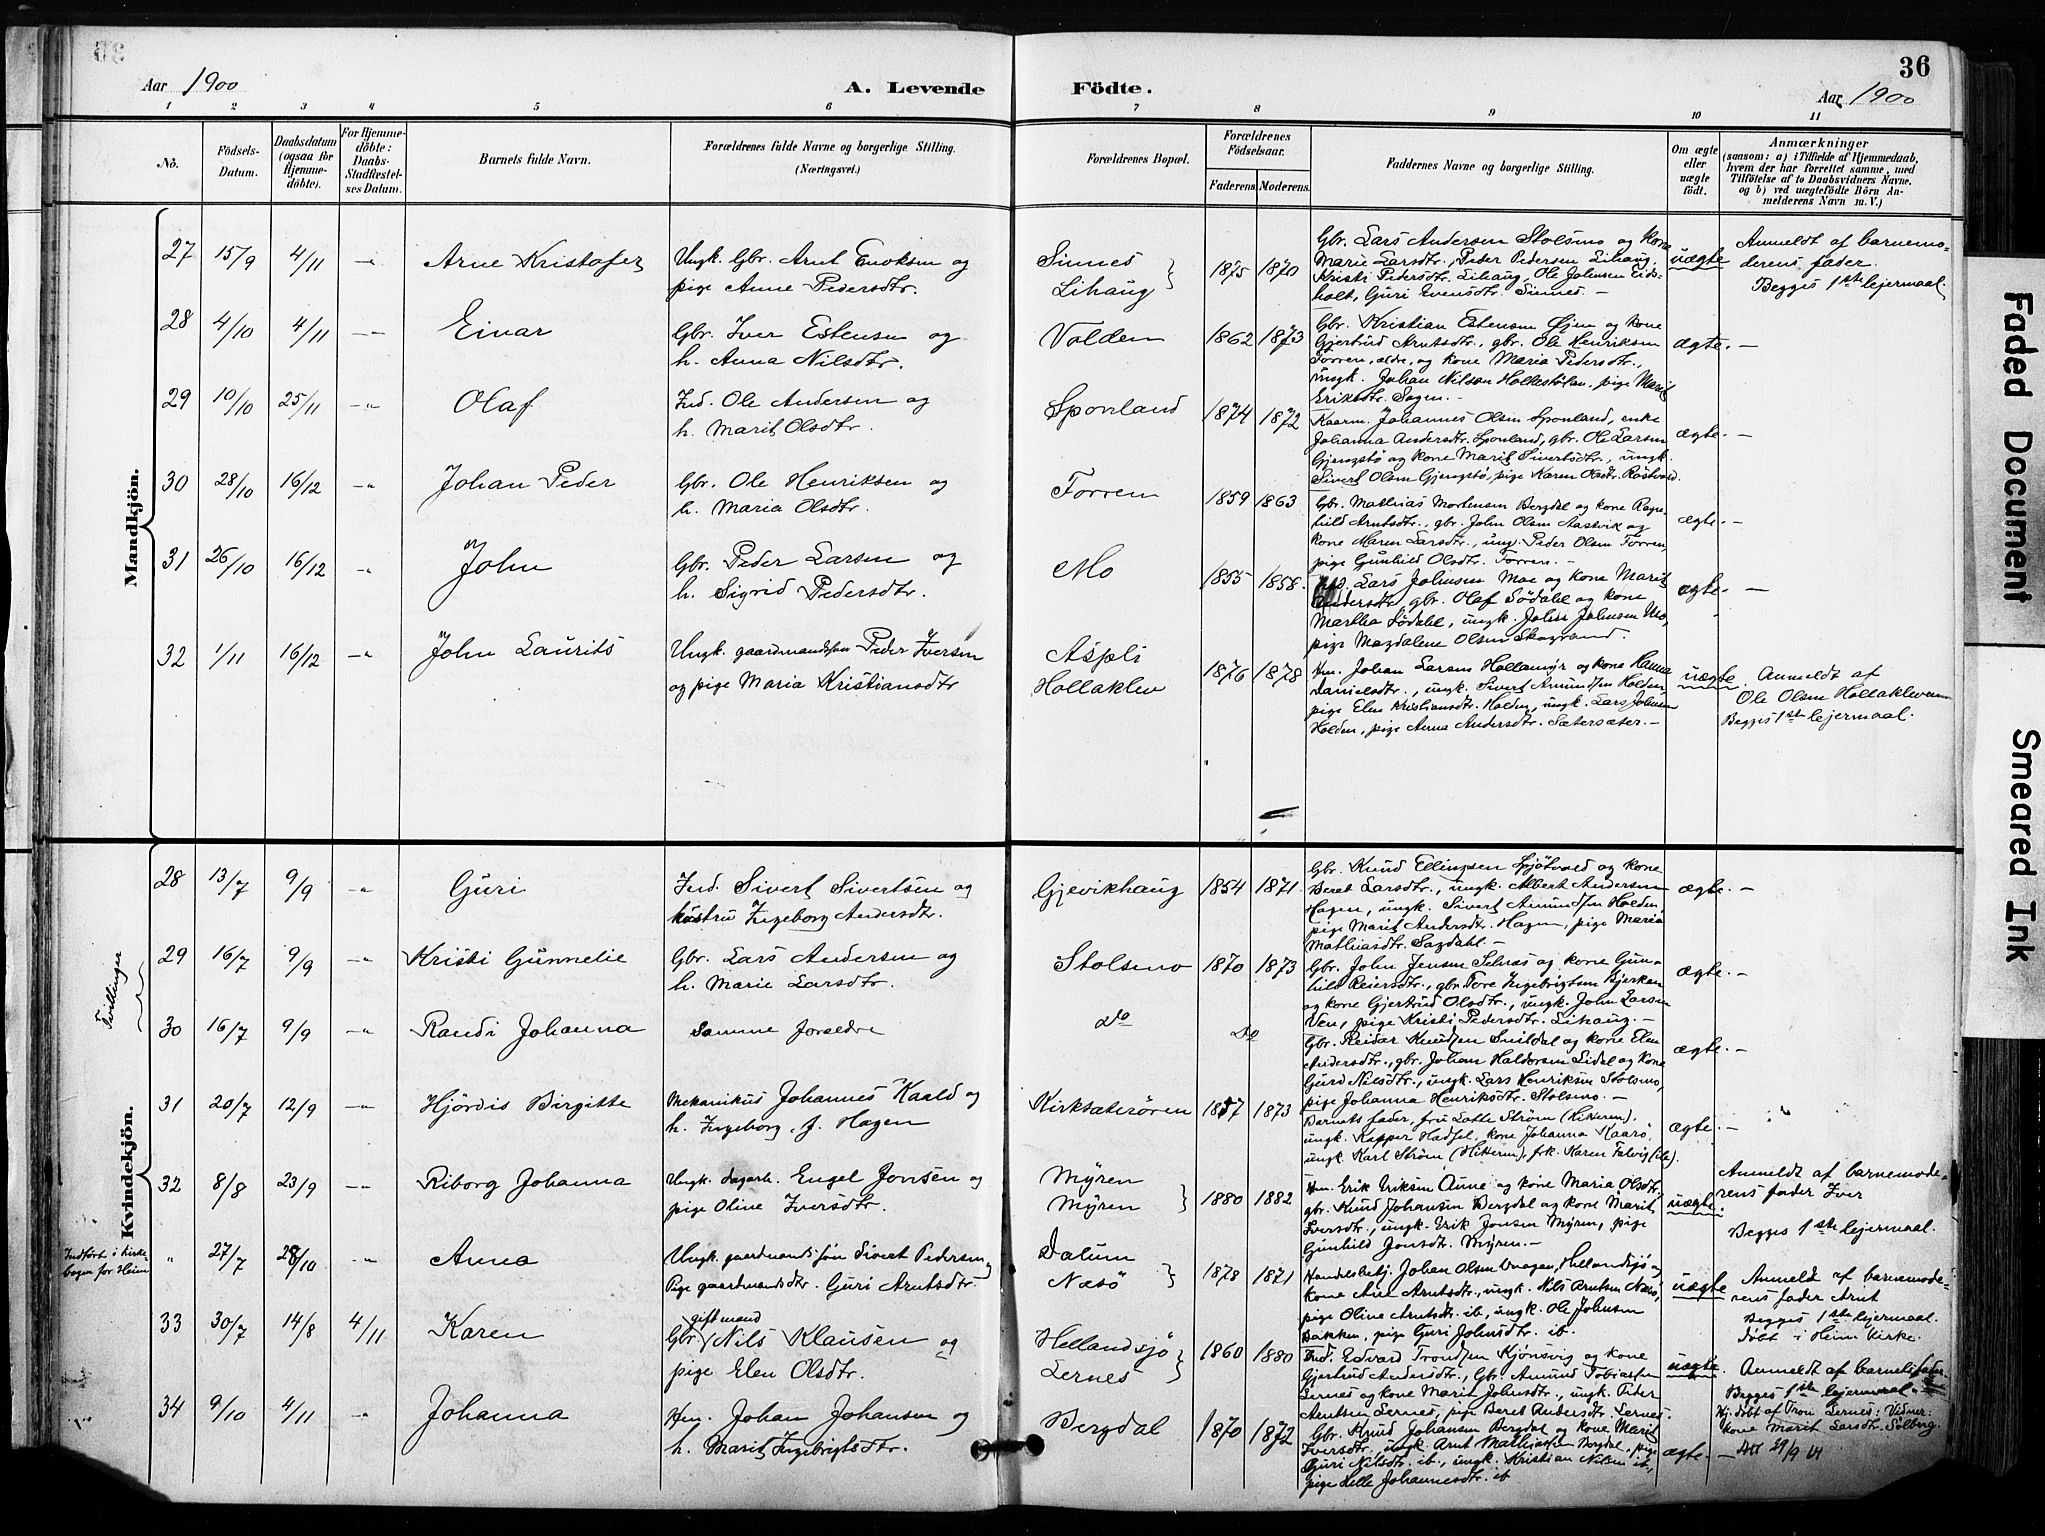 36
Aar 1900
A. Levende
Födte.
Aar 1900
1 2 3 4 5 6 7 8 9 10 11
No.
Födsels-Datum.
Daabsdatum (ogsaa for Hjemmedöbte).
For Hjemmedöbte: Daabs-Stadfæstelses Datum.
Barnets fulde Navn.
Forældrenes fulde Navne og borgerlige Stilling.
(Næringsvei.)
Forældrenes Bopæl.
Forældrenes Födselsaar.
Faderens.
Moderens.
Faddernes Navne og borgerlige Stilling.
Om ægte eller uægte födt.
Anmærkninger
(saasom: a) i Tilfælde af Hjemmedaab,
hvem der har forrettet samme, med
Tilföielse af to Daabsvidners Navne.
og b) ved uægtefödte Börn An-
melderens Navn m. V.)
Mandkjön.
27 15/9 4/11 -"- Arne Kristofer
Ungk. Gbr. Arnt Enoksen og
pige Anne Pedersdtr.
Sinnes
Lihaug
1875 1870
Gbr. Lars Andersen Stolsmo og kone
Marie Larsdtr., Peder Pedersen Lihaug,
Kristi Pedersdtr. Lihaug, Ole Johnsen Eids-
holt, Guri Evensdtr. Sinnes. -
uægte
Anmeldt af barnemo-
derens fader.
Begges 1ste lejermaal.
28 4/10 4/11 -"- Einar
Gbr. Iver Estensen og
h. Anna Nilsdtr.
Volden
1862 1873
Gbr. Kristian Estensen Øjen og kone
Gjertrud Arntsdtr., gbr. Ole Henriksen
Forren, ældre, og kone Maria Pedersdtr.,
ungk. Johan Nilsen Holkestølen, pige Marit
Eriksdtr. Sagen. -
ægte. -
29 10/10 25/11 -"- Olaf
Ind. Ole Andersen og
h. Marit Olsdtr.
Sponland
1874 1872
Kaarm. Johannes Olsen Sponland, enke
Johanna Andersdtr. Sponland, gbr. Ole Larsen
Gjengstø og kone Marit Sivertsdtr., ungk.
Sivert Olsen Gjengstø, pige Karen Olsdtr. Røstvold.
ægte. -
30 28/10 16/12 -"- Johan Peder
Gbr. Ole Henriksen og
h. Maria Olsdtr.
Forren
1859 1863
Gbr. Mathias Mortensen Bergdal og kone Ragn-
hild Arntsdtr., gbr. John Olsen Aasvik og
kone Maren Larsdtr., ung. Peder Olsen Forren,
pige Gunhild Olsdtr. Forren. -
ægte. -
31 26/10 16/12 -"- John
Gbr. Peder Larsen og
h. Sigrid Pedersdtr.
Mo
1855 1858.
Lars Johnsen Moe og kone Marit
Andersdtr., gbr. Olaf Sødahl og kone
Martha Sødahl, ungk. Johan Johnsen Mo,
pige Magdalene Olsen Skogrand.
ægte. -
32 1/11 16/12 -"- John Laurits
Ungk. gaardmandssøn Peder Iversen
og pige Maria Kristiansdtr
Aspli
Hollaklev
1876 1878
Hm. Johan Larsen Hollamyr og kone Hanna
Danielsdtr., ungk. Sivert Amundsen Holden,
pige Elen Kristiansdtr. Holden, ungk. Lars Johnsen
Holden, pige Anna Andersdtr. Sætersæter. -
uægte
Anmeldt af
Ole Olsen Hollakleven
Begges 1ste lejermaal.
Kvindekjön.
28 13/7 9/9 -"- Guri
Ind. Sivert Sivertsen og
hustru Ingeborg Andersdtr.
Gjevikhaug
1854 1871
Gbr. Knud Ellingsen Sjøtvold og kone
Beret Larsdtr., ungk. Albert Andersen
Hagen, ungk. Sivert Amundsen Holden,
pige Marit Andersdtr. Hagen, pige Maria
Mathiasdtr. Sagdahl. -
ægte. -
Tvillinger
29 16/7 9/9 -"- Kristi Gunnelie
Gbr. Lars Andersen og
h. Marie Larsdtr.
Stolsmo
1870 1873
Gbr. John Jensen Selnes og kone Gun-
hild Reiersdtr., gbr. Tore Ingebrigtsen Bjerkan
og kone Gjertrud Olsdtr., ungk. John Larsen
Ven, pige Kristi Pedersdtr. Lihaug. -
ægte. -
30 16/7 9/9 -"- Randi Johanna
Samme forældre
Do
Do
Gbr. Reidar Knudsen Snildal og kone Elen
Andersdtr., gbr. Johan Haldorsen Lidal og kone
Gurd Nilsdtr., ungk. Lars Henriksen Stolsmo,
pige Johanna Henriksdtr. Stolsmo. -
ægte. -
31 20/7 12/9 -"- Hjørdis Birgitte
Mekanikus Johannes Kaald og
h. Ingeborg, f. Hagen
Kirksæterøren
1857 1873
Barnets fader, fru Lotte Strøm (Hitteren),
ungk. Kasper Hadsel, kone Johanna Kaarø,
ungk. Karl Strøm (Hitteren), frk. Karen Falvig (ib).
ægte. -
"
32 8/8 23/9 -"- Riborg Johanna
Ungk. dagarb. Engel Jonsen og
pige Oline Iversdtr.
Myren
Myren
1880 1882
Hm. Erik Eriksen Aune og kone Maria Olsdtr,
gbr. Knud Johansen Bergdal og kone Marit
Iversdtr., ungk. Erik Jonsen Myren, pige
Gunhild Jonsdtr. Myren. -
uægte.
Anmeldt af barnemode-
rens fader Iver
Begges 1ste lejermaal.
Indført i kirke-
bogen for Heim
" 27/7 28/10 -"- Anna
Ungk. gaardmandssøn Sivert Pedersen og
Pige gaardmandsdtr. Guri Arntsdtr.
Dalum
Næsø
1878 1871
Handelsbetj. Johan Olsen Vaagan, Hellandsjø og
kone Ane Arntsdtr., ungk. Nils Arntsen Næsø,
pige Oline Arntsdtr. ib., ungk. Ole Johnsen
Bakken, pige Guri Johnsdtr. ib.
uægte
Anmeldt af barnemode-
rens fader Arnt
Begges 1ste lejermaal.
Døbt i Heim Kirke.
33 30/7 14/8 4/11 Karen
gift mand
Gbr. Nils Klausen og
pige Elen Olsdtr.
Hellandsjø
Lernes
1860 1880
Ind. Edvard Trondsen Kjønsvig og kone
Gjertrud Andersdtr., Gbr. Amund Tobiassen
Lernes og kone Marit Johnsdtr., ungk. Peder
Arntsen Lernes, pige Beret Andersdtr. Lernes.
uægte
Anmeldt af barnets fader.
Begges 1ste lejermaal.
Hj. døbt af Tron Lernes; Vidner:
kone Marit Larsdtr. Solberg.
29/9 14
34 9/10 4/11 -"- Johanna
Hm. Johan Johansen og
h. Marit Ingebrigtsdtr.
Bergdal
1870 1872
Gbr. Knud Johansen Bergdal og kone Marit
Iversdtr., ungk. Arnt Mathiassen Bergdal, pige
Guri Nilsdtr. ib., ungk. Kristian Nilsen ib.,
pige Helle Johannesdtr. ib
ægte. -
Faded Document
Smeared Ink